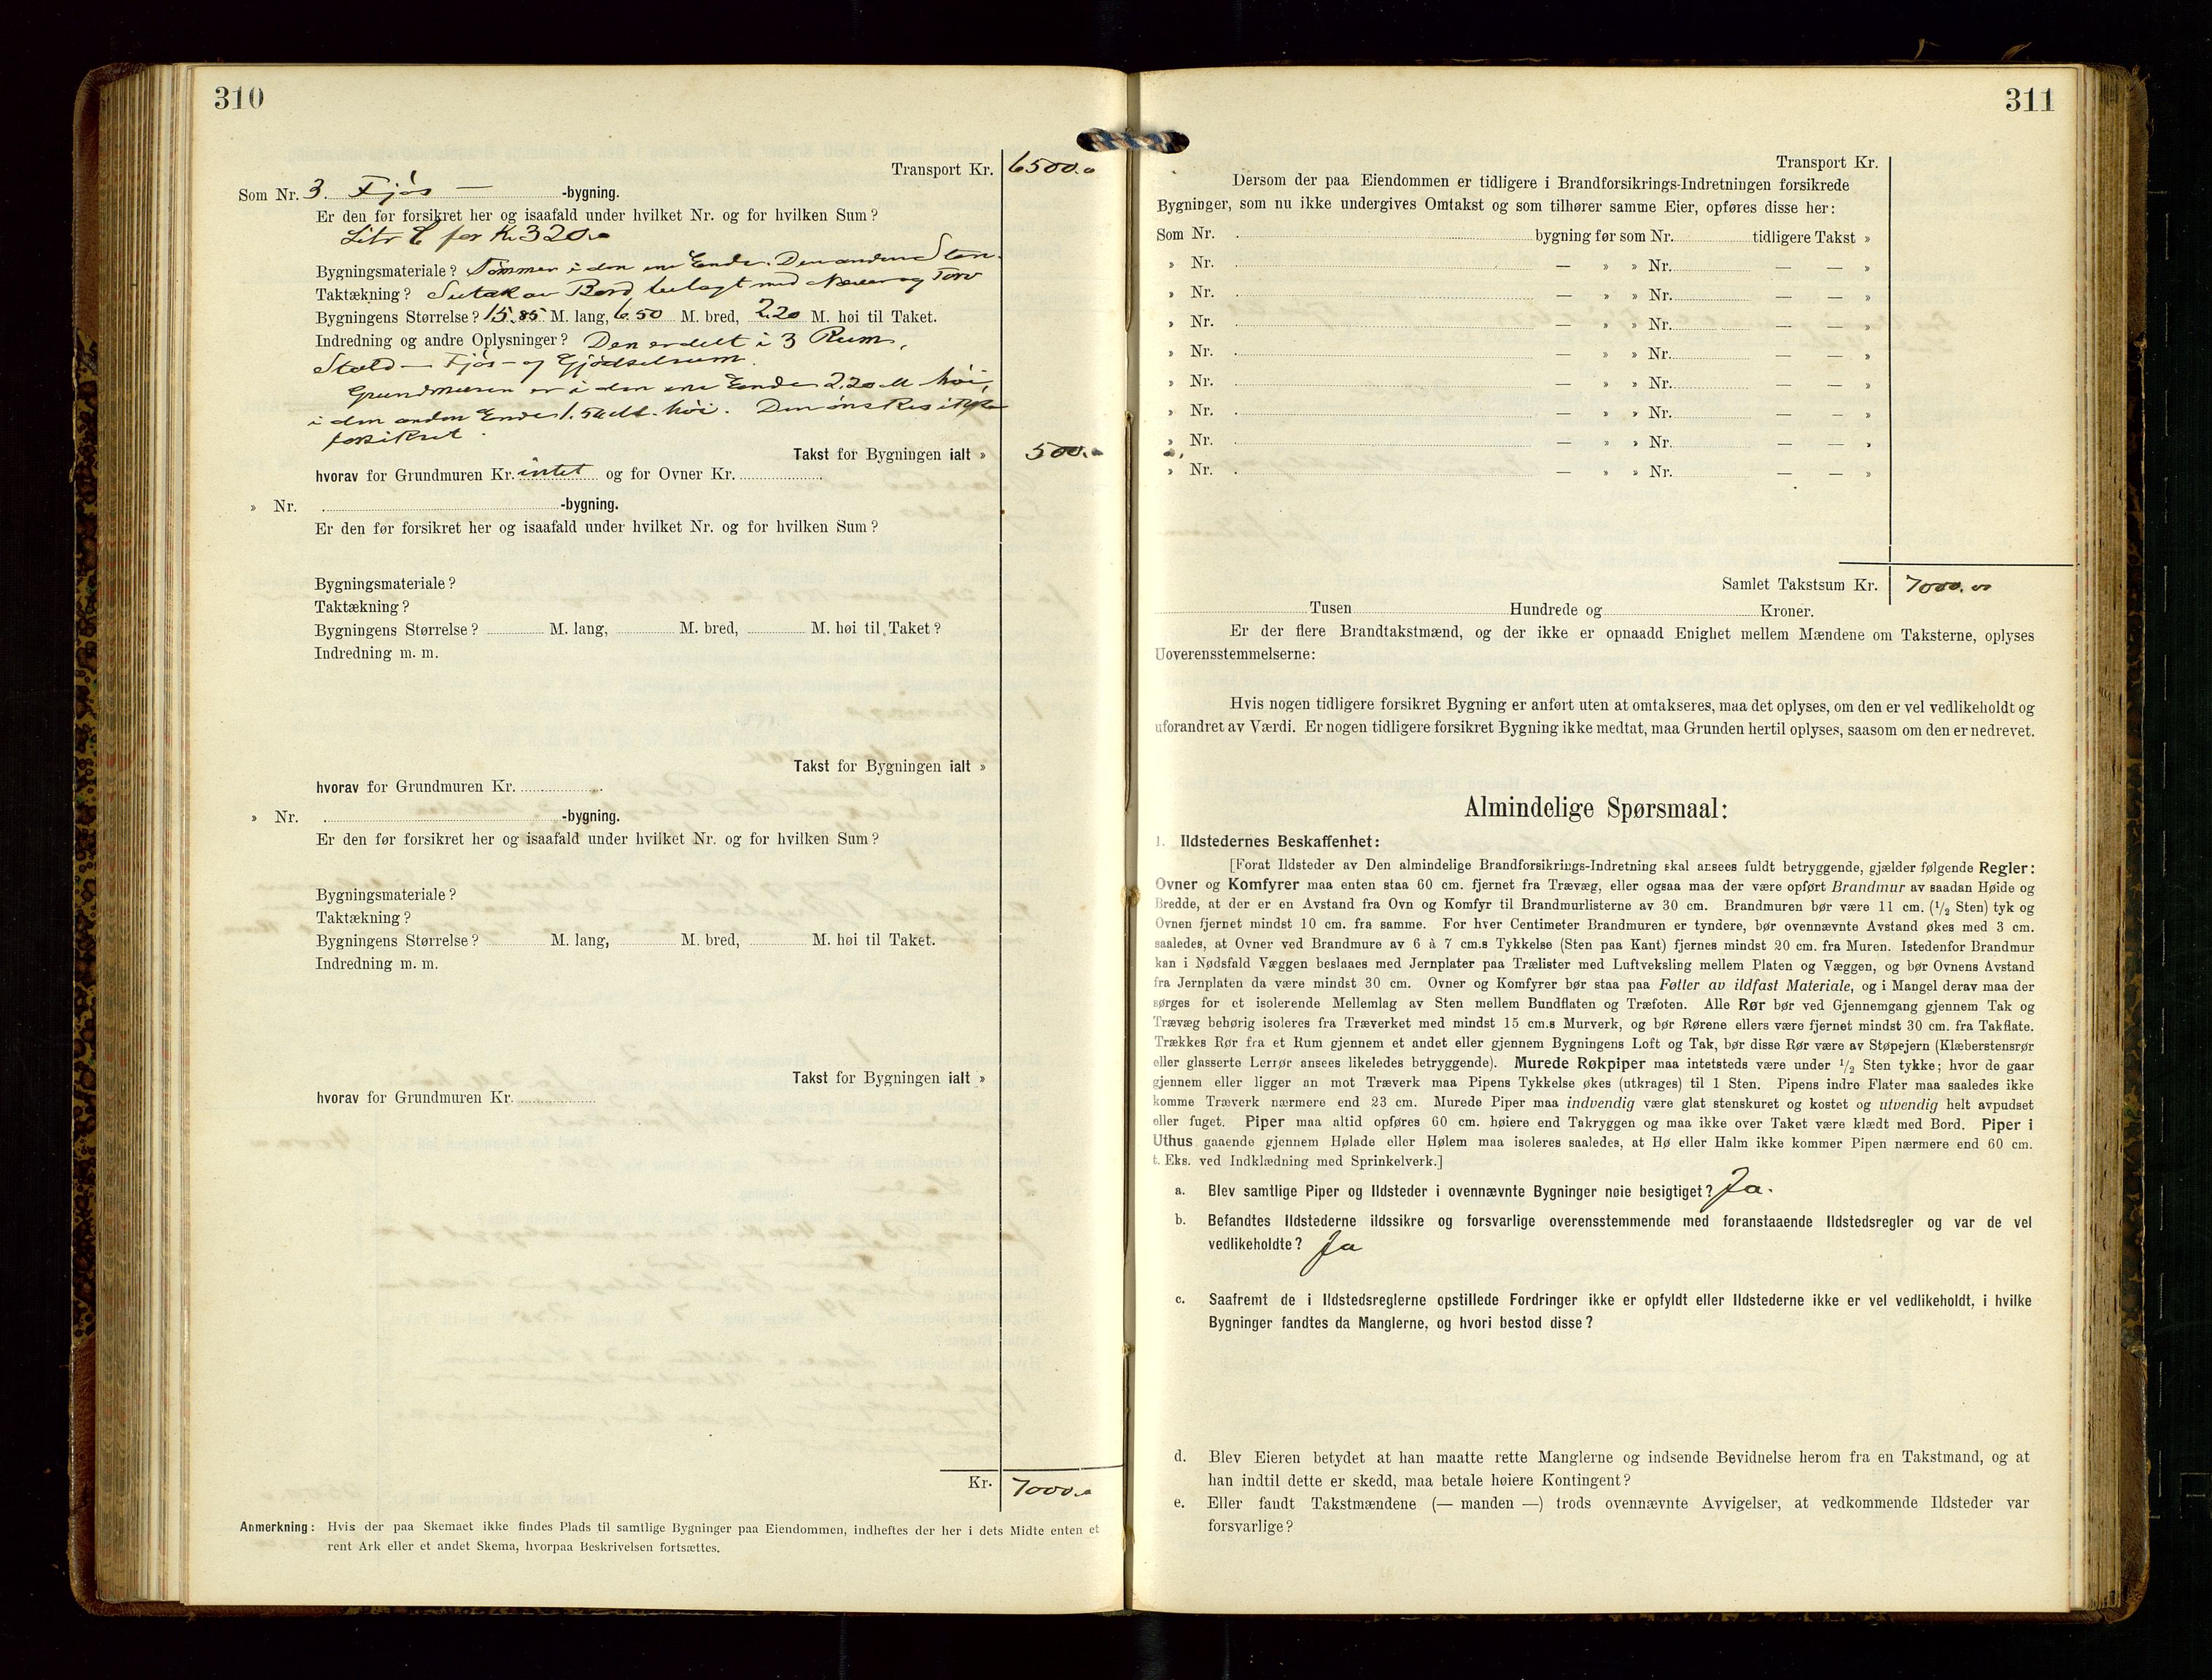 310
Transport Kr. 6500.00
Som Nr. 3. Fjøs — -bygning.
Er den før forsikret her og isaafald under hvilket Nr. og for hvilken Sum?
Litr C for Kr 320.00
Bygningsmateriale? Tømmer i den ene Ende. Den anden Sten.
Taktækning? Sutak av Bord, belagt med Næver og Torv
Bygningens Størrelse? 15.85 M. lang, 6.50 M. bred, 2.20 M. høi til Taket.
Indredning og andre Oplysninger? Den er delt i 3 Rum,
Stald — Fjøs — og Gjødselrum.
Grundmuren er i den ene Ende 2.20 M høi,
i den anden Ende 1.50 M. høi. Den ønskes ikke
forsikret.
Takst for Bygningen ialt » 500.00
hvorav for Grundmuren Kr. intet og for Ovner Kr.
» Nr. -bygning.
Er den før forsikret her og isaafald under hvilket Nr. og for hvilken Sum?
Bygningsmateriale?
Taktækning?
Bygningens Størrelse? M. lang, M. bred, M. høi til Taket?
Indredning m. m.
Takst for Bygningen ialt »
hvorav for Grundmuren Kr.
» Nr. -bygning.
Er den før forsikret her og isaafald under hvilket Nr. og for hvilken Sum?
Bygningsmateriale?
Taktækning?
Bygningens Størrelse? M. lang, M. bred, M. høi til Taket.
Indredning m. m.
Takst for Bygningen ialt »
hvorav for Grundmuren Kr.
Kr. 7000.00
Anmerkning: Hvis der paa Skemaet ikke findes Plads til samtlige Bygninger paa Eiendommen, indheftes der her i dets Midte enten et
rent Ark eller et andet Skema, hvorpaa Beskrivelsen fortsættes.
311
Transport Kr.
Dersom der paa Eiendommen er tidligere i Brandforsikrings-Indretningen forsikrede
Bygninger, som nu ikke undergives Omtakst og som tilhører samme Eier, opføres disse her:
Som Nr. bygning før som Nr. tidligere Takst »
» Nr. — » » Nr. — — »
» Nr. — » » Nr. — — »
» Nr. — » » Nr. — — »
» Nr. — » » Nr. — — »
» Nr. — » » Nr. — — »
» Nr. — » » Nr. — — »
» Nr. — » » Nr. — — »
» Nr. — » » Nr. — — »
Samlet Takstsum Kr. 7000.00
Tusen Hundrede og Kroner.
Er der flere Brandtakstmænd, og der ikke er opnaadd Enighet mellem Mændene om Taksterne, oplyses
Uoverensstemmelserne:
Hvis nogen tidligere forsikret Bygning er anført uten at omtakseres, maa det oplyses, om den er vel vedlikeholdt og
uforandret av Værdi. Er nogen tidligere forsikret Bygning ikke medtat, maa Grunden hertil oplyses, saasom om den er nedrevet.
Almindelige Spørsmaal:
1. Ildstedernes Beskaffenhet:
[Forat Ildsteder av Den almindelige Brandforsikrings-Indretning skal ansees fuldt betryggende, gjælder følgende Regler:
Ovner og Komfyrer maa enten staa 60 cm. fjernet fra Trævæg, eller ogsaa maa der være opført Brandmur av saadan Høide og
Bredde, at der er en Avstand fra Ovn og Komfyr til Brandmurlisterne av 30 cm. Brandmuren bør være 11 cm. (1/2 Sten) tyk og
Ovnen fjernet mindst 10 cm. fra samme. For hver Centimeter Brandmuren er tyndere, bør ovennævnte Avstand økes med 3 cm.
saaledes, at Ovner ved Brandmure av 6 à 7 cm.s Tykkelse (Sten paa Kant) fjernes mindst 20 cm. fra Muren. Istedenfor Brandmur
kan i Nødsfald Væggen beslaaes med Jernplater paa Trælister med Luftveksling mellem Platen og Væggen, og bør Ovnens Avstand
fra Jernplaten da være mindst 30 cm. Ovner og Komfyrer bør staa paa Føtter av ildfast Materiale, og i Mangel derav maa der
sørges for et isolerende Mellemlag av Sten mellem Bundflaten og Træfoten. Alle Rør bør ved Gjennemgang gjennem Tak og
Trævæg behørig isoleres fra Træverket med mindst 15 cm.s Murverk, og bør Rørene ellers være fjernet mindst 30 cm. fra Takflate.
Trækkes Rør fra et Rum gjennem et andet eller gjennem Bygningens Loft og Tak, bør disse Rør være av Støpejern (Klæberstensrør
eller glasserte Lerrør ansees likeledes betryggende). Murede Røkpiper maa intetsteds være under 1/2 Sten tykke; hvor de gaar
gjennem eller ligger an mot Træverk maa Pipens Tykkelse økes (utkrages) til 1 Sten. Pipens indre Flater maa saaledes ikke
komme Træverk nærmere end 23 cm. Murede Piper maa indvendig være glat stenskuret og kostet og utvendig helt avpudset
eller fuget. Piper maa altid opføres 60 cm. høiere end Takryggen og maa ikke over Taket være klædt med Bord. Piper i
Uthus gaaende gjennem Hølade eller Hølem maa isoleres saaledes, at Hø eller Halm ikke kommer Pipen nærmere end 60 cm.
t. Eks. ved Indklædning med Sprinkelverk.]
a. Blev samtlige Piper og Ildsteder i ovennævnte Bygninger nøie besigtiget? Ja.
b. Befandtes Ildstederne ildssikre og forsvarlige overensstemmende med foranstaaende Ildstedsregler og var de vel
vedlikeholdte? Ja
c. Saafremt de i Ildstedsreglerne opstillede Fordringer ikke er opfyldt eller Ildstederne ikke er vel vedlikeholdt, i hvilke
Bygninger fandtes da Manglerne, og hvori bestod disse?
d. Blev Eieren betydet at han maatte rette Manglerne og indsende Bevidnelse herom fra en Takstmand, og at
han indtil dette er skedd, maa betale høiere Kontingent?
e. Eller fandt Takstmændene (— manden —) trods ovennævnte Avvigelser, at vedkommende Ildsteder var
forsvarlige?